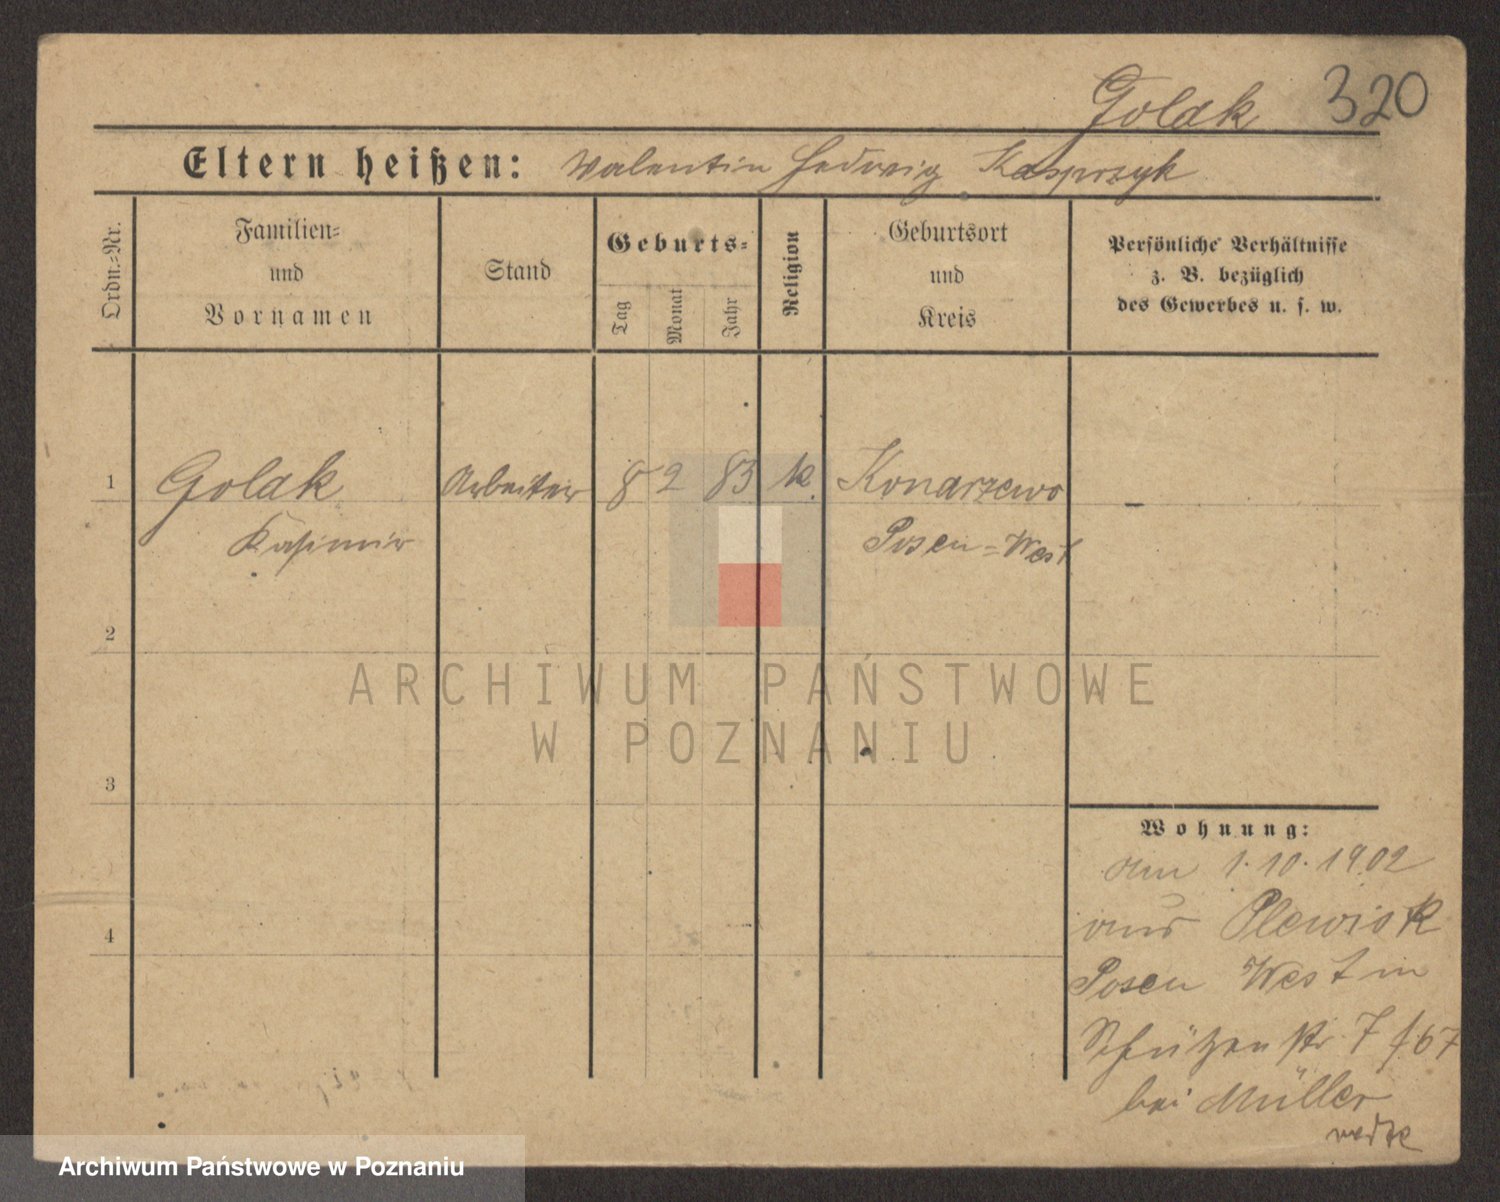 Golak 320
Eltern heißen: Valentin Hedwig Kasprzyk
Ordn.=Nr.
Familien=
und
Vornamen
Stand
Geburts=
Tag
Monat
Jahr
Religion
Geburtsort
und
Kreis
Persönliche Verhältnisse
z. B. bezüglich
des Gewerbes u. s. w.
1 Golak Arbeiter 8 2 83 k. Konarzewo –
Kasimir Posen=West
2
3
4
Wohnung:
am 1.10.1902
aus Plewisk
Posen West in
Schützenstr 7
bei Müller
ARCHIWUM PAŃSTWOWE
W POZNANIU
Archiwum Państwowe w Poznaniu